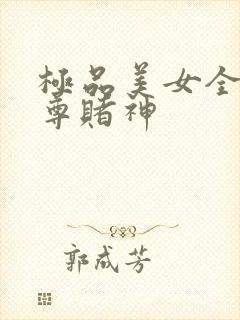 極品美女全
尊賭神
郭成芳